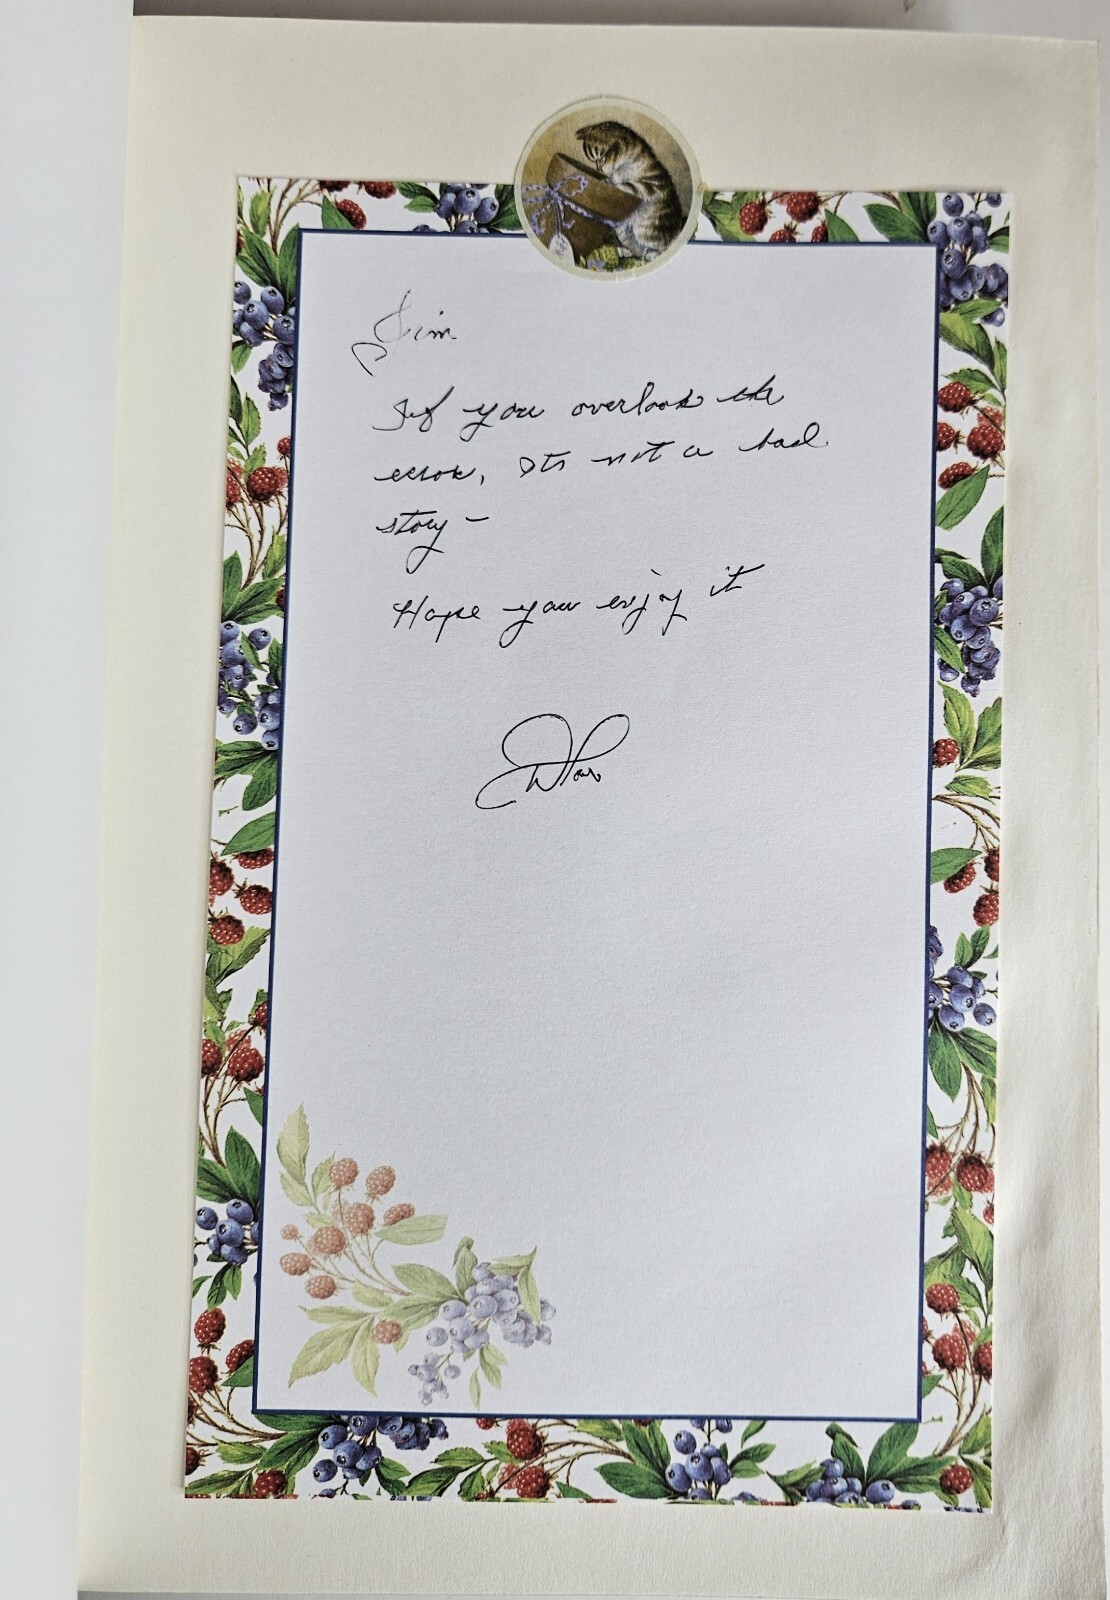 Jim
If you overlook the
error, Its not a bad
story –
Hope you enjoy it